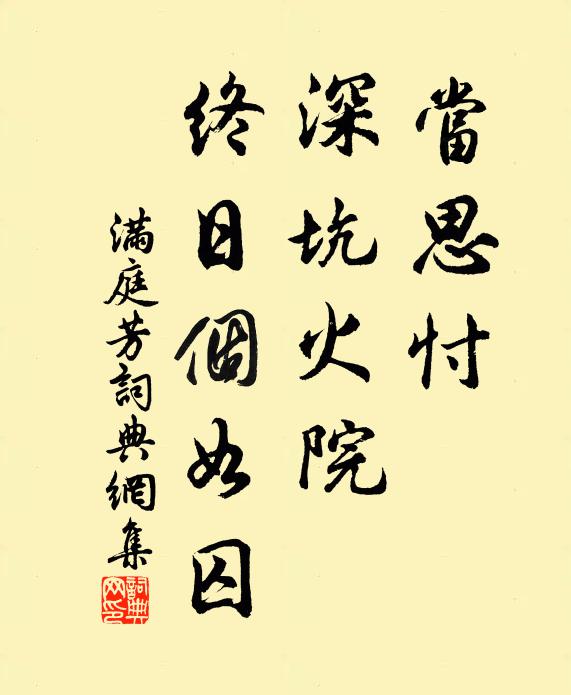 當思忖
深坑火院
終日個如囚
滿庭芳詞典網集
詞典
网印